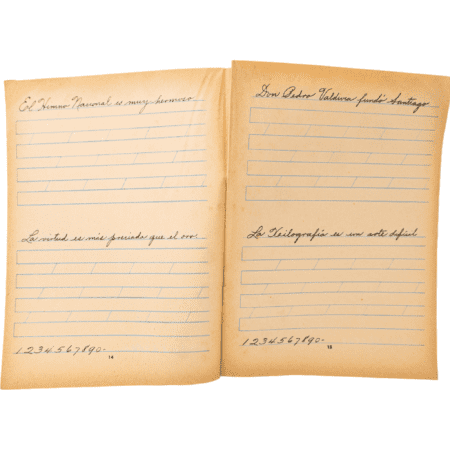 El Himno Nacional es muy hermoso
La virtud es más preciada que el oro.
1234567890-
14
Don Pedro Valdivia fundó Santiago
La Xilografía es un arte difícil
1234567890-
15